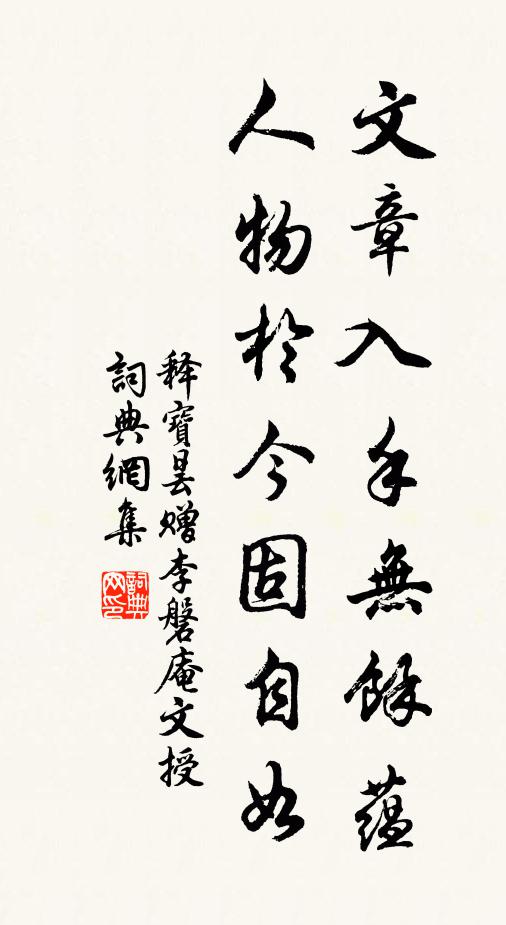 文章入手無餘蘊
人物於今固自如
释寶曇赠李磐庵文授
詞典網集
詞典网印